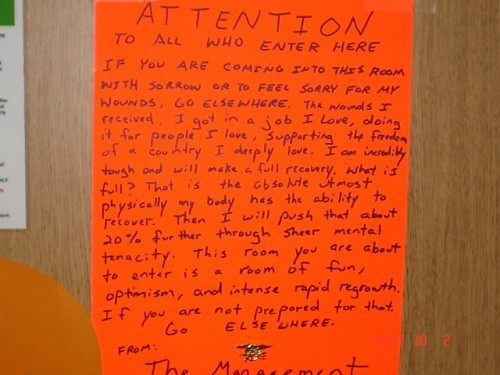 ATTENTION
TO ALL WHO ENTER HERE
IF YOU ARE COMING INTO THIS ROOM
WITH SORROW OR TO FEEL SORRY FOR MY
WOUNDS, GO ELSEWHERE. The wounds I
received, I got in a job I love, doing
it for people I love, supporting the freedom
of a country I deeply love. I am incredibly
tough and will make a full recovery. What is
full? That is the absolute utmost
physically my body has the ability to
recover. Then I will push that about
20% further through sheer mental
tenacity. This room you are about
to enter is a room of fun,
optimism, and intense rapid regrowth.
If you are not prepared for that,
Go ELSE WHERE.
FROM:
The Management